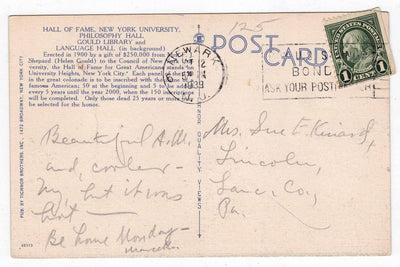 HALL OF FAME, NEW YORK UNIVERSITY,
PHILOSOPHY HALL
GOULD LIBRARY and
LANGUAGE HALL (in background)
Erected in 1900 by a gift of $250,000 from
Shepard (Helen Gould) to the Council of New
sity, the Hall of Fame for Great Americans stands on
University Heights, New York City. Each panel of the
in the great colonnade is to be inscribed with the
famous American; 50 at the beginning and 5 to be added
every 5 years until the year 2000, when the 150 inscriptions
Only those dead 25 years or more
125
POST CARD
NEWARK
1939
N.J.
BOND
ASK YOUR POST
1 CENT 1
PUB. BY TICHNOR BROTHERS INC., 1472 BROADWAY, NEW YORK CITY
QUALITY VIEWS
Beautiful A.M.
and cooler-
My, but it was
hot-
Be home Monday-
Mrs. Sue E. Kinard,
Lincoln,
Lanc. Co.,
Pa.